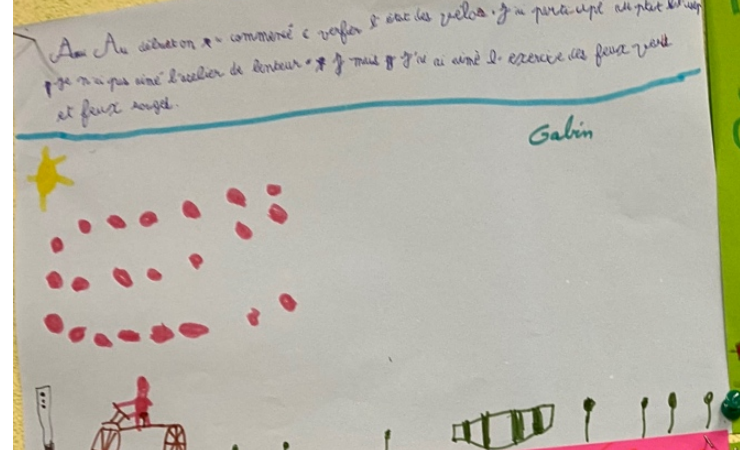 Au on commencé verfier l' état des vélos. J'ai participé
je n'ai pas aimé l'atelier de lenteur. mais j'ai aimé l' exercice des feux vert
et feux rouges.
Gabin